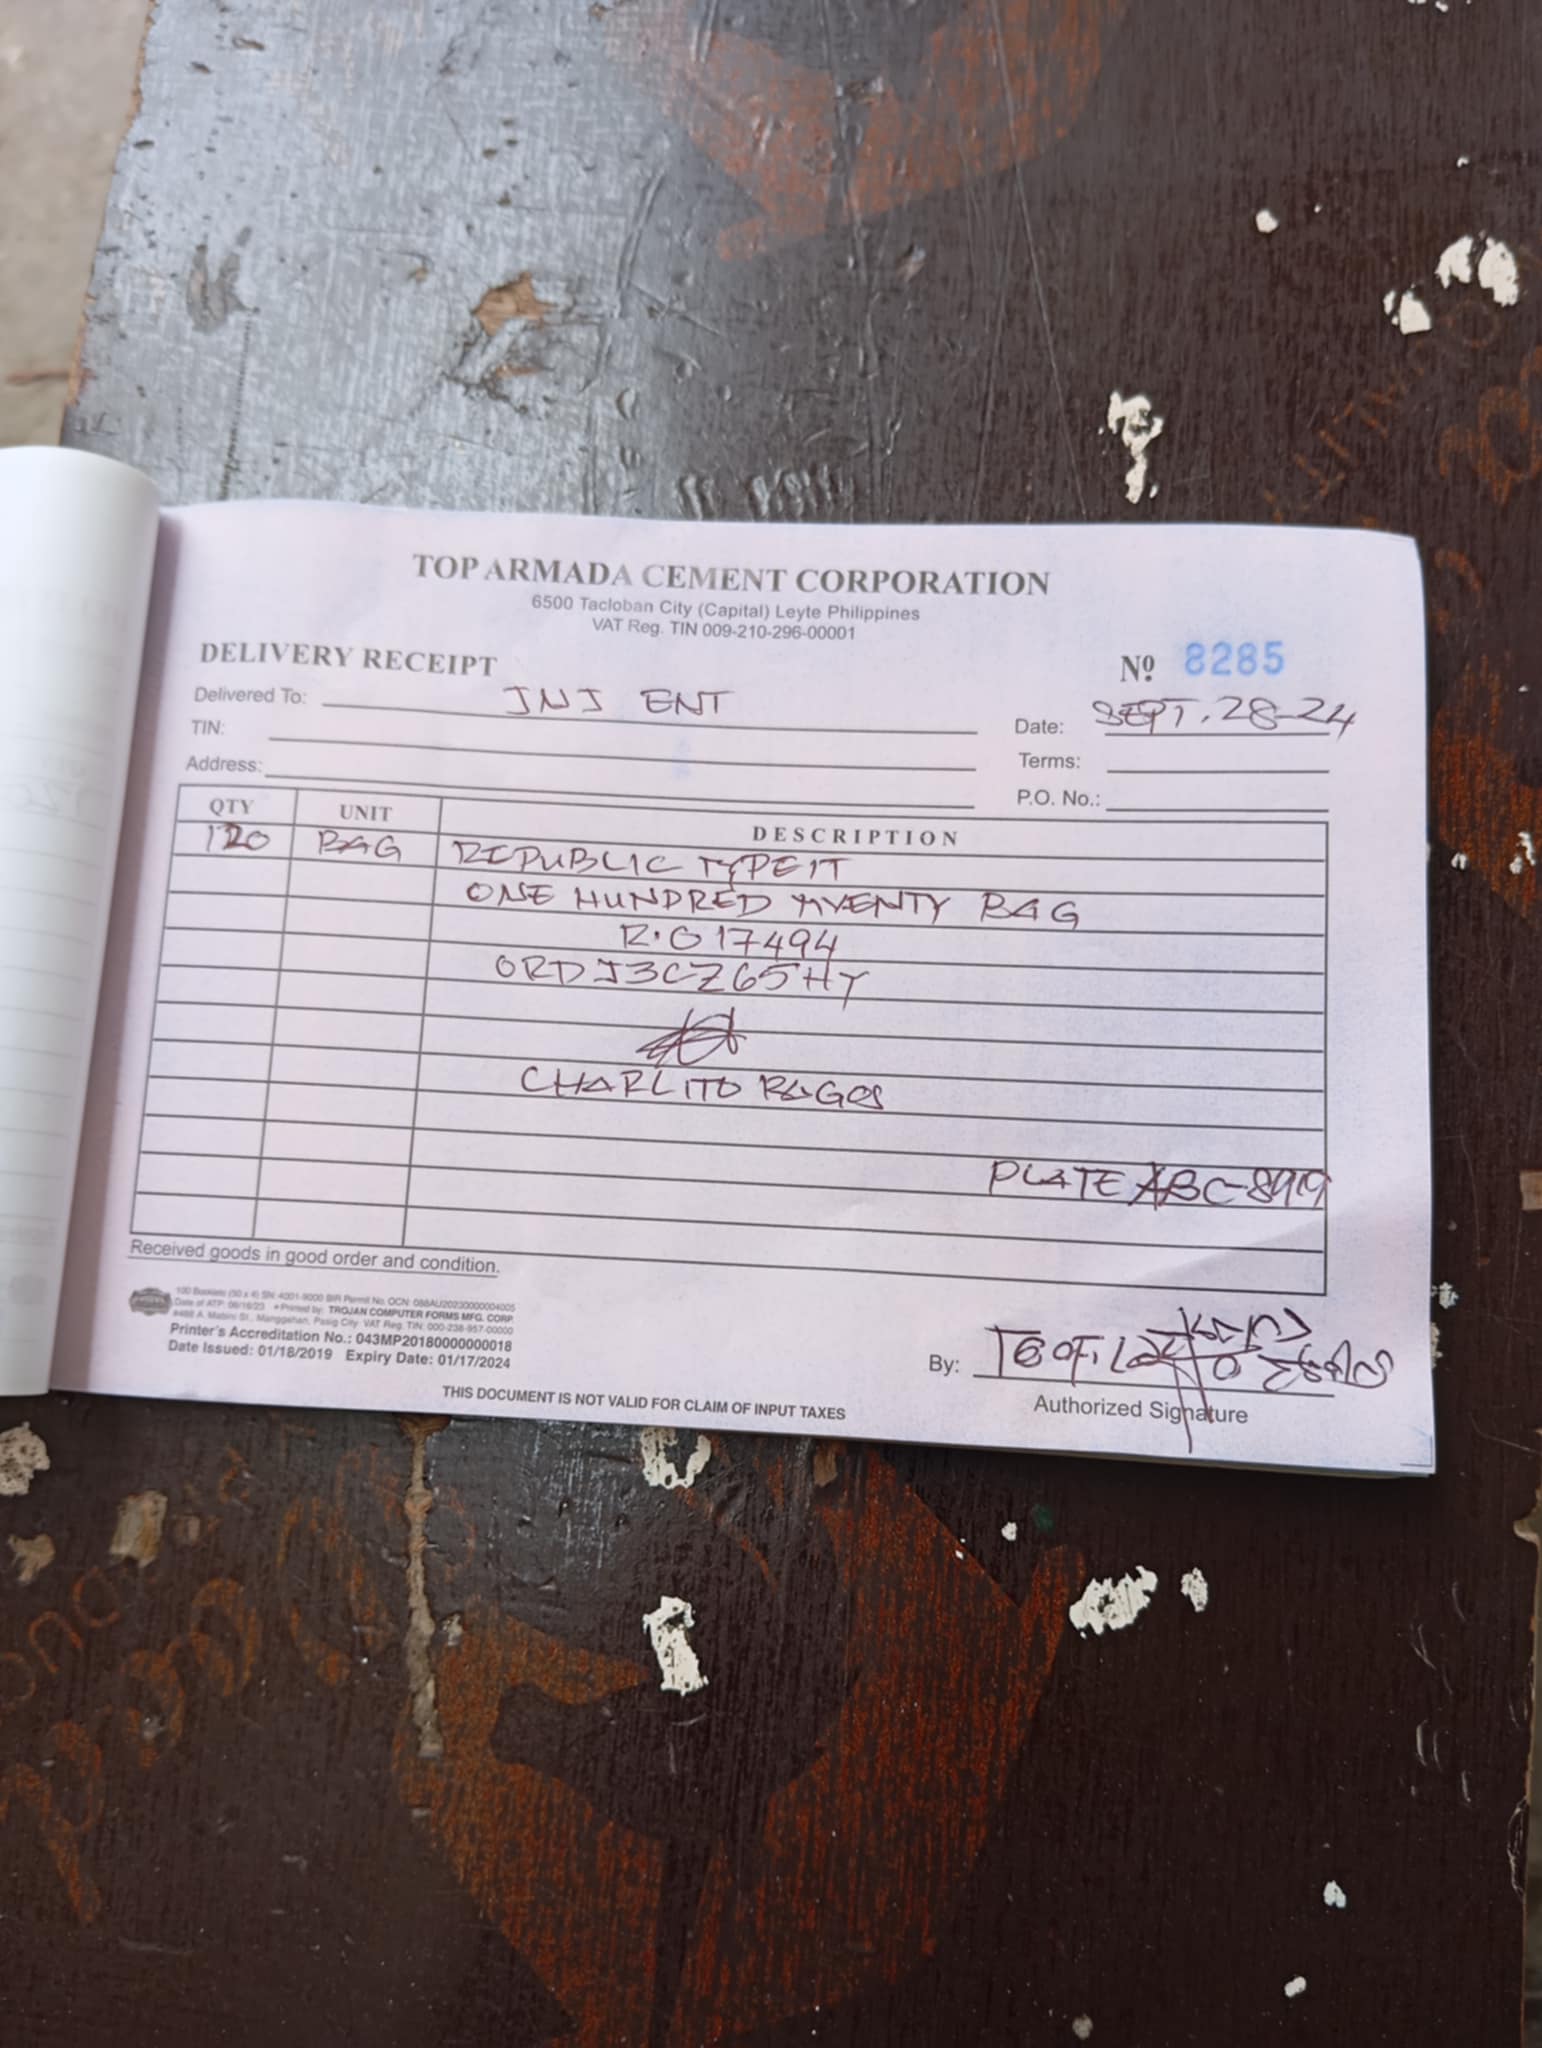 TOP ARMADA CEMENT CORPORATION
6500 Tacloban City (Capital) Leyte Philippines
VAT Reg. TIN 009-210-296-00001
DELIVERY RECEIPT
Nº 8285
Delivered To: JNJ ENT
Date: SEPT. 28-24
TIN:
Terms:
Address:
P.O. No.:
QTY UNIT DESCRIPTION
120 BAG REPUBLIC TYPE 1T
ONE HUNDRED TWENTY BAG
R.O 17494
ORDJ3CZ65HY
CHARLITO RAGOS
PLATE ABC-8919
Received goods in good order and condition.
100 Booklets (50 x 4) SN: 4001-9000 BIR Permit No. OCN: 088AU20230000004005
Date of ATP: 06/16/23 • Printed by: TROJAN COMPUTER FORMS MFG. CORP.
#488 A. Mabini St., Manggahan, Pasig City VAT Reg. TIN: 000-238-957-00000
Printer's Accreditation No.: 043MP20180000000018
Date Issued: 01/18/2019 Expiry Date: 01/17/2024
By:
Authorized Signature
THIS DOCUMENT IS NOT VALID FOR CLAIM OF INPUT TAXES